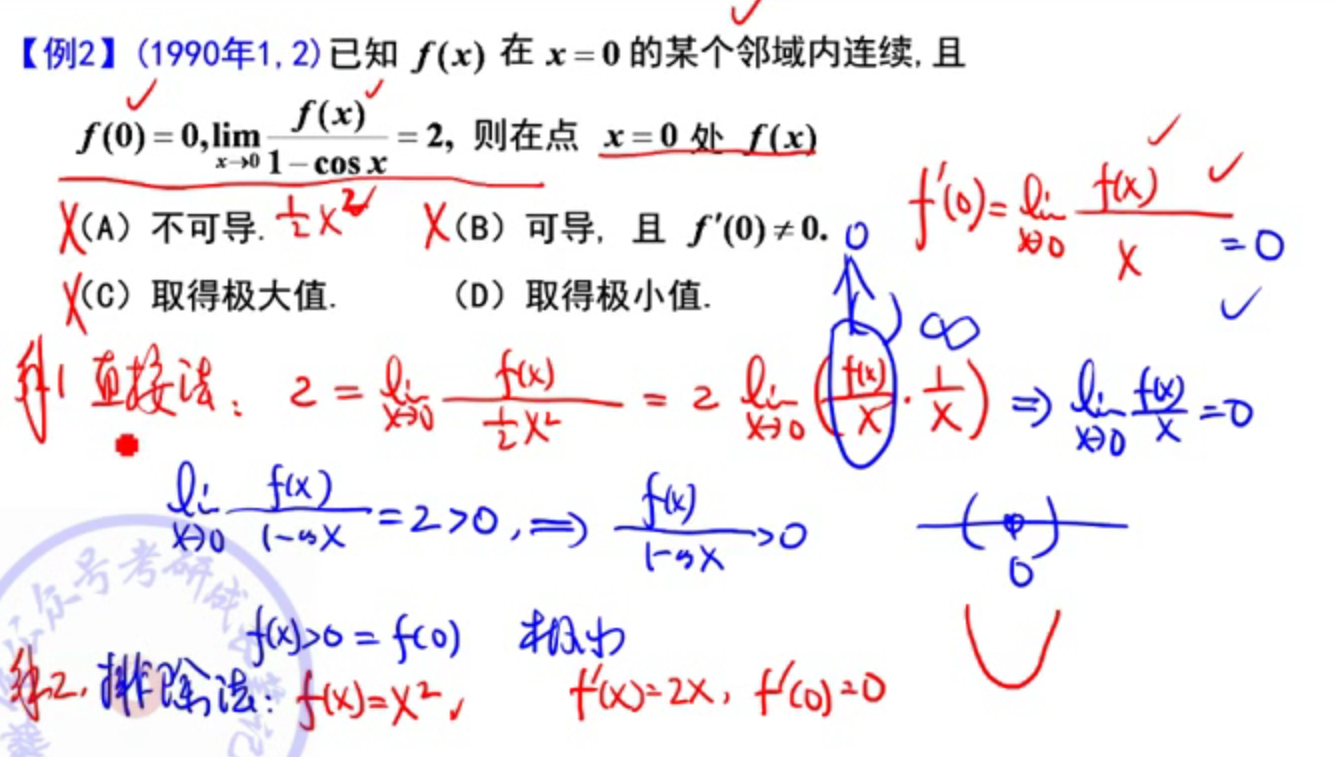 【例2】(1990年1,2)已知 f(x) 在 x=0 的某个邻域内连续,且
f(0)=0, lim_{x→0} f(x)/(1−cos x) = 2, 则在点 x=0 处 f(x)
f′(0)= lim_{x→0} f(x)/x =0
X(A) 不可导. ½x² X(B) 可导, 且 f′(0)≠0.
X(C) 取得极大值. (D) 取得极小值.
0
∞
直接法: 2 = lim_{x→0} f(x)/(½x²) = 2 lim_{x→0} (f(x)/x · 1/x) ⇒ lim_{x→0} f(x)/x =0
lim_{x→0} f(x)/(1-cosx) =2>0, ⇒ f(x)/(1-cosx) >0
0
f(x)>0 = f(0) 极小
2. 排除法: f(x)=x² f′(x)=2x, f′(0)=0
公众号考研成
记